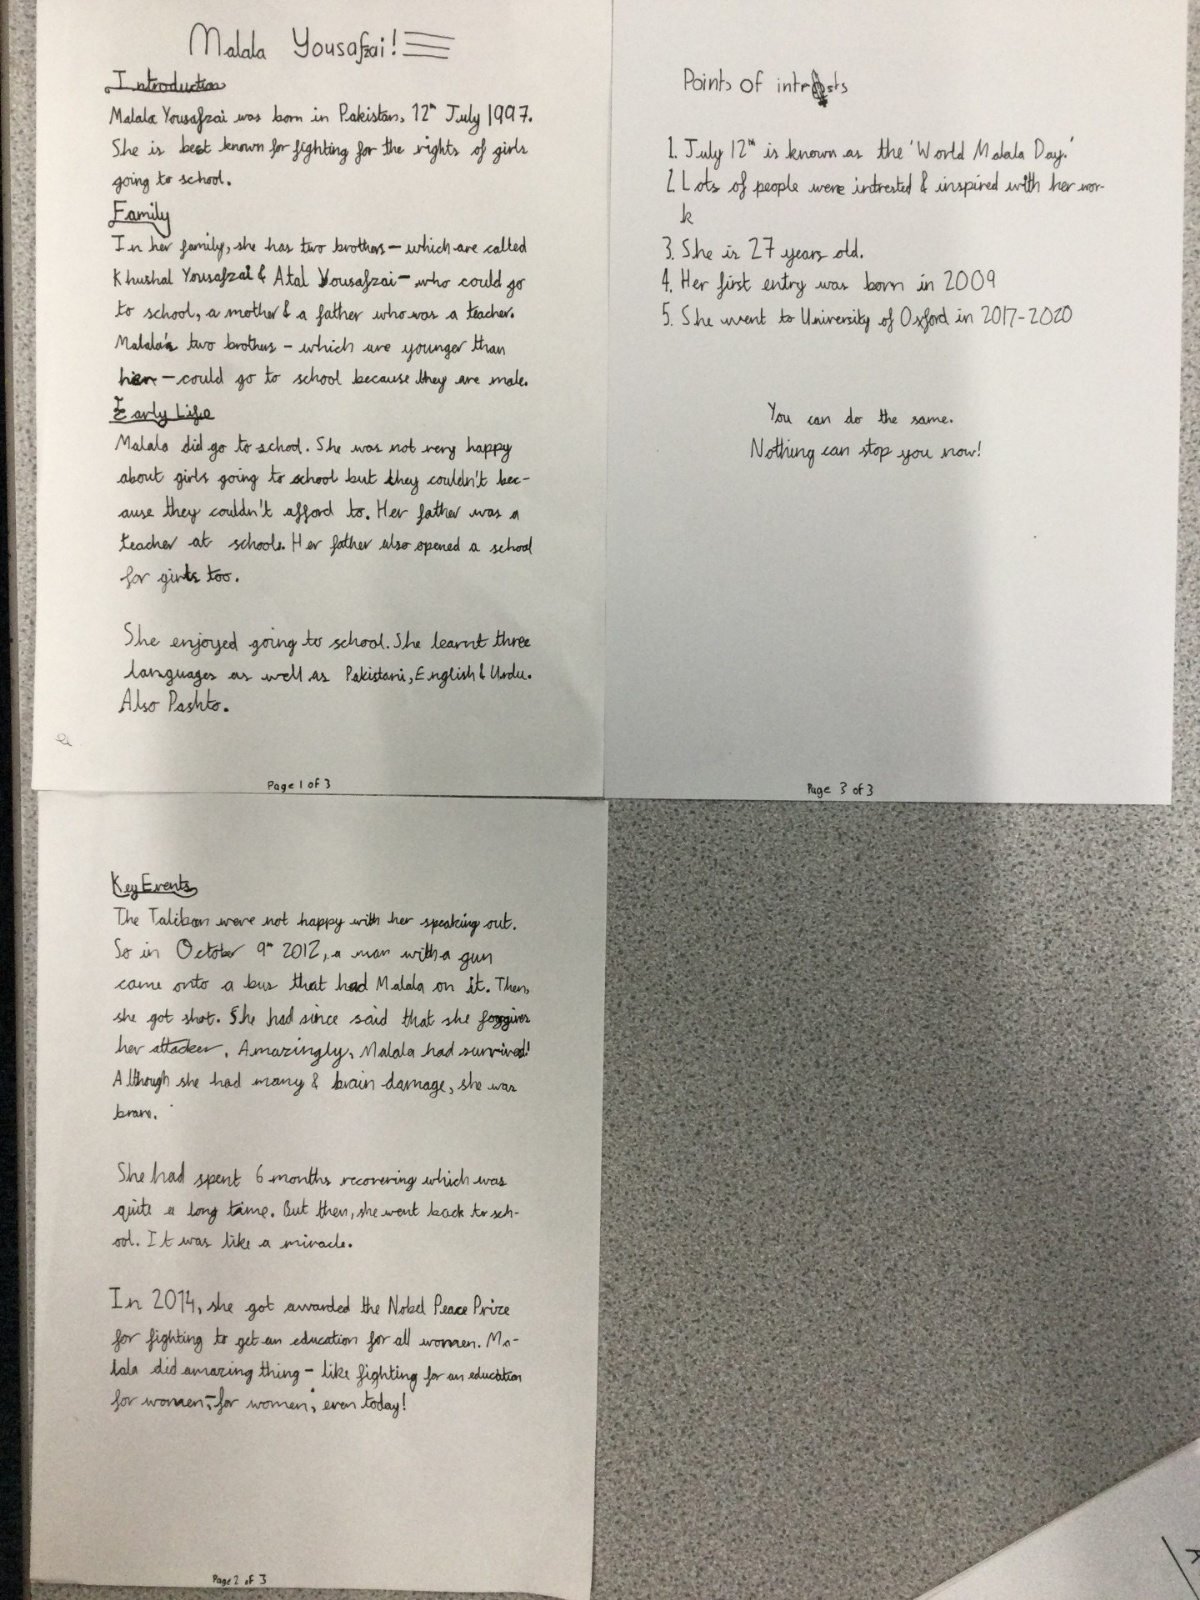 Malala Yousafzai!
Introduction
Malala Yousafzai was born in Pakistan, 12th July 1997.
She is best known for fighting for the rights of girls
going to school.
Family
In her family, she has two brothers – which are called
Khushal Yousafzai & Atal Yousafzai – who could go
to school, a mother & a father who was a teacher.
Malala's two brothers – which are younger than
her – could go to school because they are male.
Early Life
Malala did go to school. She was not very happy
about girls going to school but they couldn't bec-
ause they couldn't afford to. Her father was a
teacher at schools. Her father also opened a school
for girls too.
She enjoyed going to school. She learnt three
languages as well as Pakistani, English & Urdu.
Also Pashto.
Page 1 of 3
Key Events
The Taliban were not happy with her speaking out.
So in October 9th 2012, a man with a gun
came onto a bus that had Malala on it. Then,
she got shot. She had since said that she forgives
her attacker. Amazingly, Malala had survived!
Although she had many & brain damage, she was
brave.
She had spent 6 months recovering which was
quite a long time. But then, she went back to sch-
ool. It was like a miracle.
In 2014, she got awarded the Nobel Peace Prize
for fighting to get an education for all women. Ma-
lala did amazing thing – like fighting for an education
for women, – for women, even today!
Page 2 of 3
Points of
1. July 12th is known as the 'World Malala Day.'
2 Lots of people were intrested & inspired with her wor-
k
3. She is 27 years old.
4. Her first entry was born in 2009
5. She went to University of Oxford in 2017-2020
You can do the same.
Nothing can stop you now!
Page 3 of 3